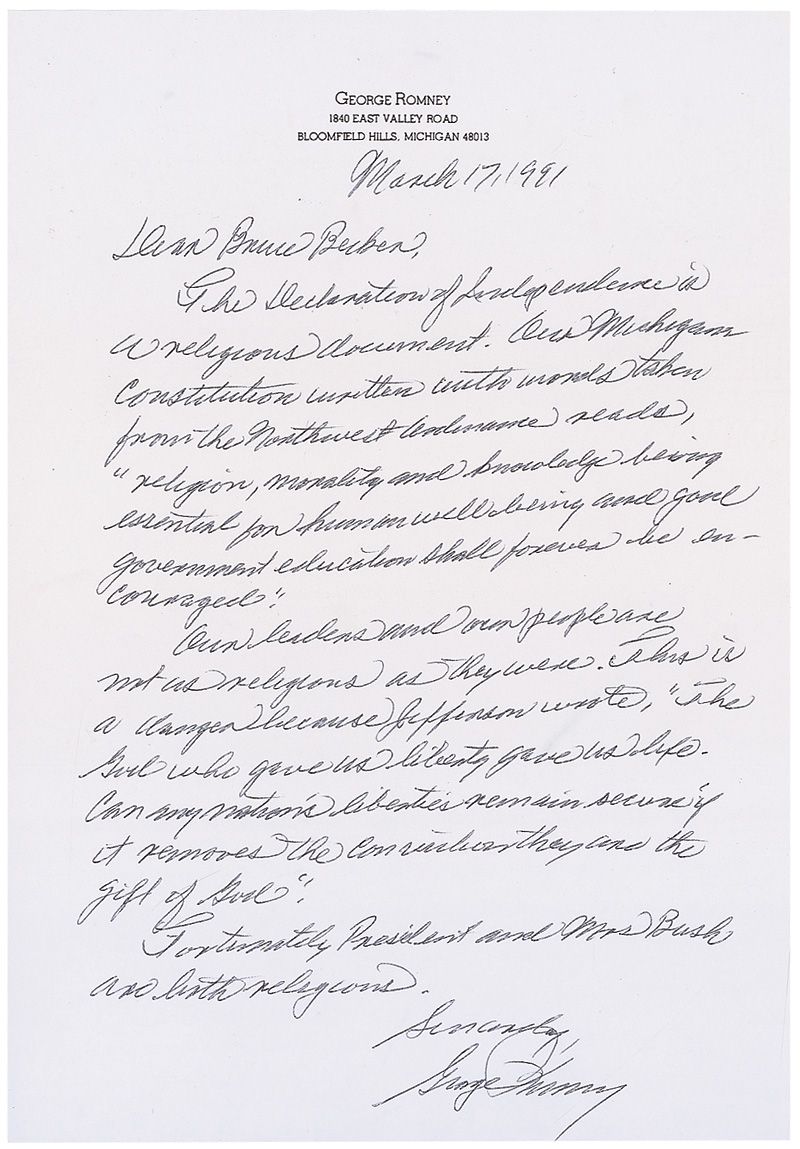 GEORGE ROMNEY
1840 EAST VALLEY ROAD
BLOOMFIELD HILLS, MICHIGAN 48013
March 17, 1991
Dear Bruce
The Declaration of Independence is
a religious document. Our Michigan
Constitution written with words taken
from the Northwest Ordinance reads,
"religion, morality and knowledge being
essential for human well being and good
government education shall forever be en-
couraged".
Our leaders and our people are
not as religious as they were. This is
a danger because Jefferson wrote, "The
God who gave us liberty gave us life.
Can any nation's liberties remain secure if
it removes the conviction they are the
gift of God".
Fortunately President and Mrs Bush
are both religious.
Sincerely,
George Romney